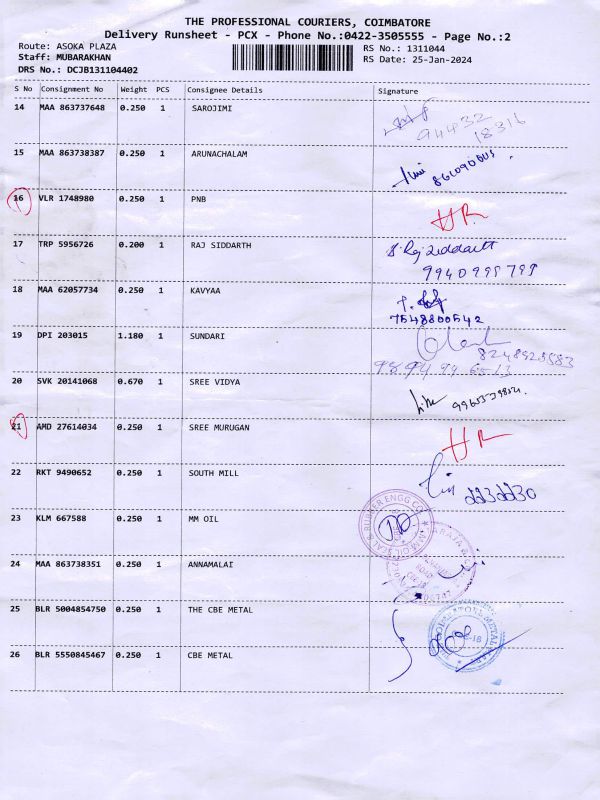 THE PROFESSIONAL COURIERS, COIMBATORE
Delivery Runsheet - PCX - Phone No.:0422-3505555 - Page No.:2
Route: ASOKA PLAZA RS No.: 1311044
Staff: MUBARAKHAN RS Date: 25-Jan-2024
DRS No.: DCJB131104402
S No Consignment No Weight PCS Consignee Details Signature
14 MAA 863737648 0.250 1 SAROJIMI
94432
18316
15 MAA 863738387 0.250 1 ARUNACHALAM
16 VLR 1748980 0.250 1 PNB
HR
17 TRP 5956726 0.200 1 RAJ SIDDARTH
S. Raj Siddartt
9940999799
18 MAA 62057734 0.250 1 KAVYAA
7548800542
19 DPI 203015 1.180 1 SUNDARI
20 SVK 20141068 0.670 1 SREE VIDYA
21 AMD 27614034 0.250 1 SREE MURUGAN
HR
22 RKT 9490652 0.250 1 SOUTH MILL
2232230
23 KLM 667588 0.250 1 MM OIL
24 MAA 863738351 0.250 1 ANNAMALAI
25 BLR 5004854750 0.250 1 THE CBE METAL
26 BLR 5550845467 0.250 1 CBE METAL